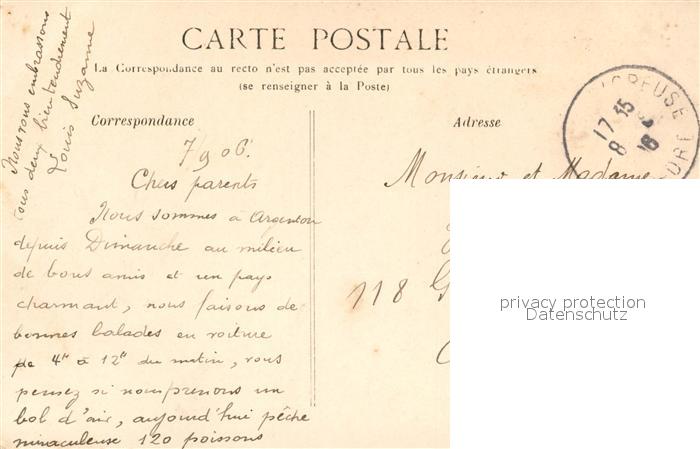 Nous vous embrassons
tous deux bien tendrement
Louis Suzanne
CARTE POSTALE
La Correspondance au recto n'est pas acceptée par tous les pays étrangers
(se renseigner à la Poste)
Correspondance
Adresse
CREUSE
17 35
8
7/9 06.
Chers parents
Nous sommes à Argenton
depuis Dimanche au milieu
de bons amis et un pays
charmant, nous faisons de
bonnes balades en voiture
de 4h à 12h du matin, vous
pensez si nous prenons un
bol d'air, aujourd'hui pêche
miraculeuse 120 poissons
Monsieur et Madame
118 G
privacy protection
Datenschutz